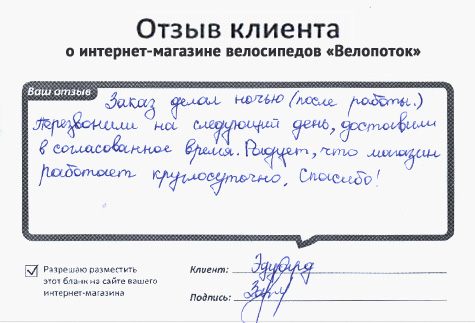 Отзыв клиента
о интернет-магазине велосипедов «Велопоток»
Ваш отзыв
Заказ делал ночью (после работы.)
Перезвонили на следующий день, доставили
в согласованное время. Радует, что магазин
работает круглосуточно. Спасибо!
Разрешаю разместить
этот бланк на сайте вашего
интернет-магазина
Клиент: Эдуард
Подпись: